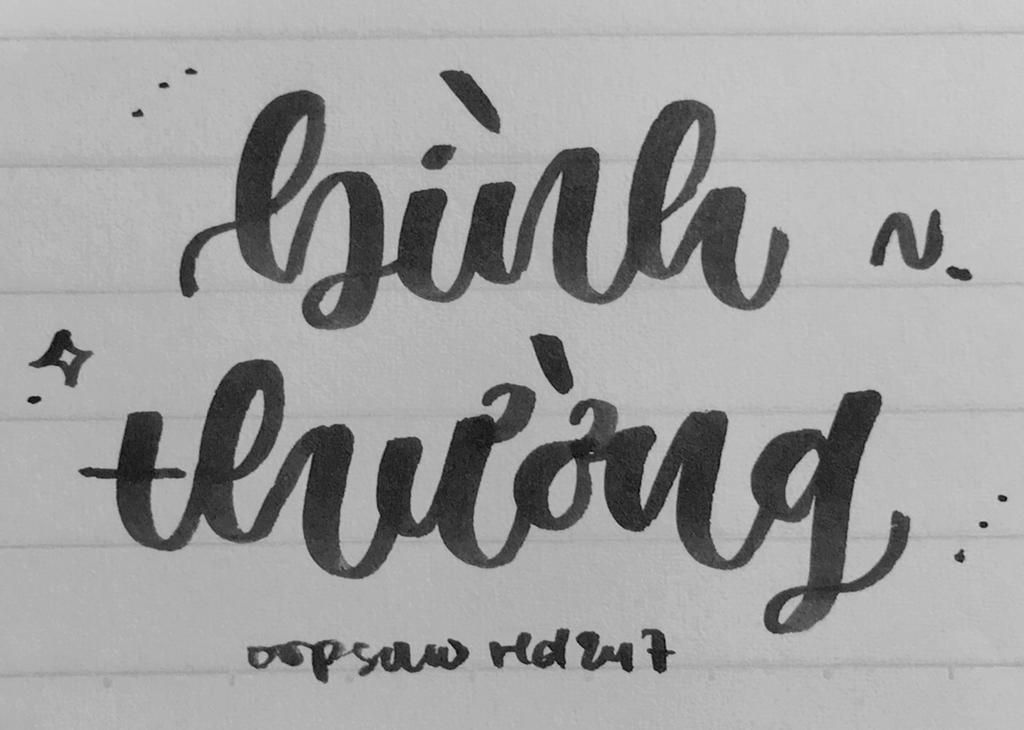 bình
thường
oopsaw red247